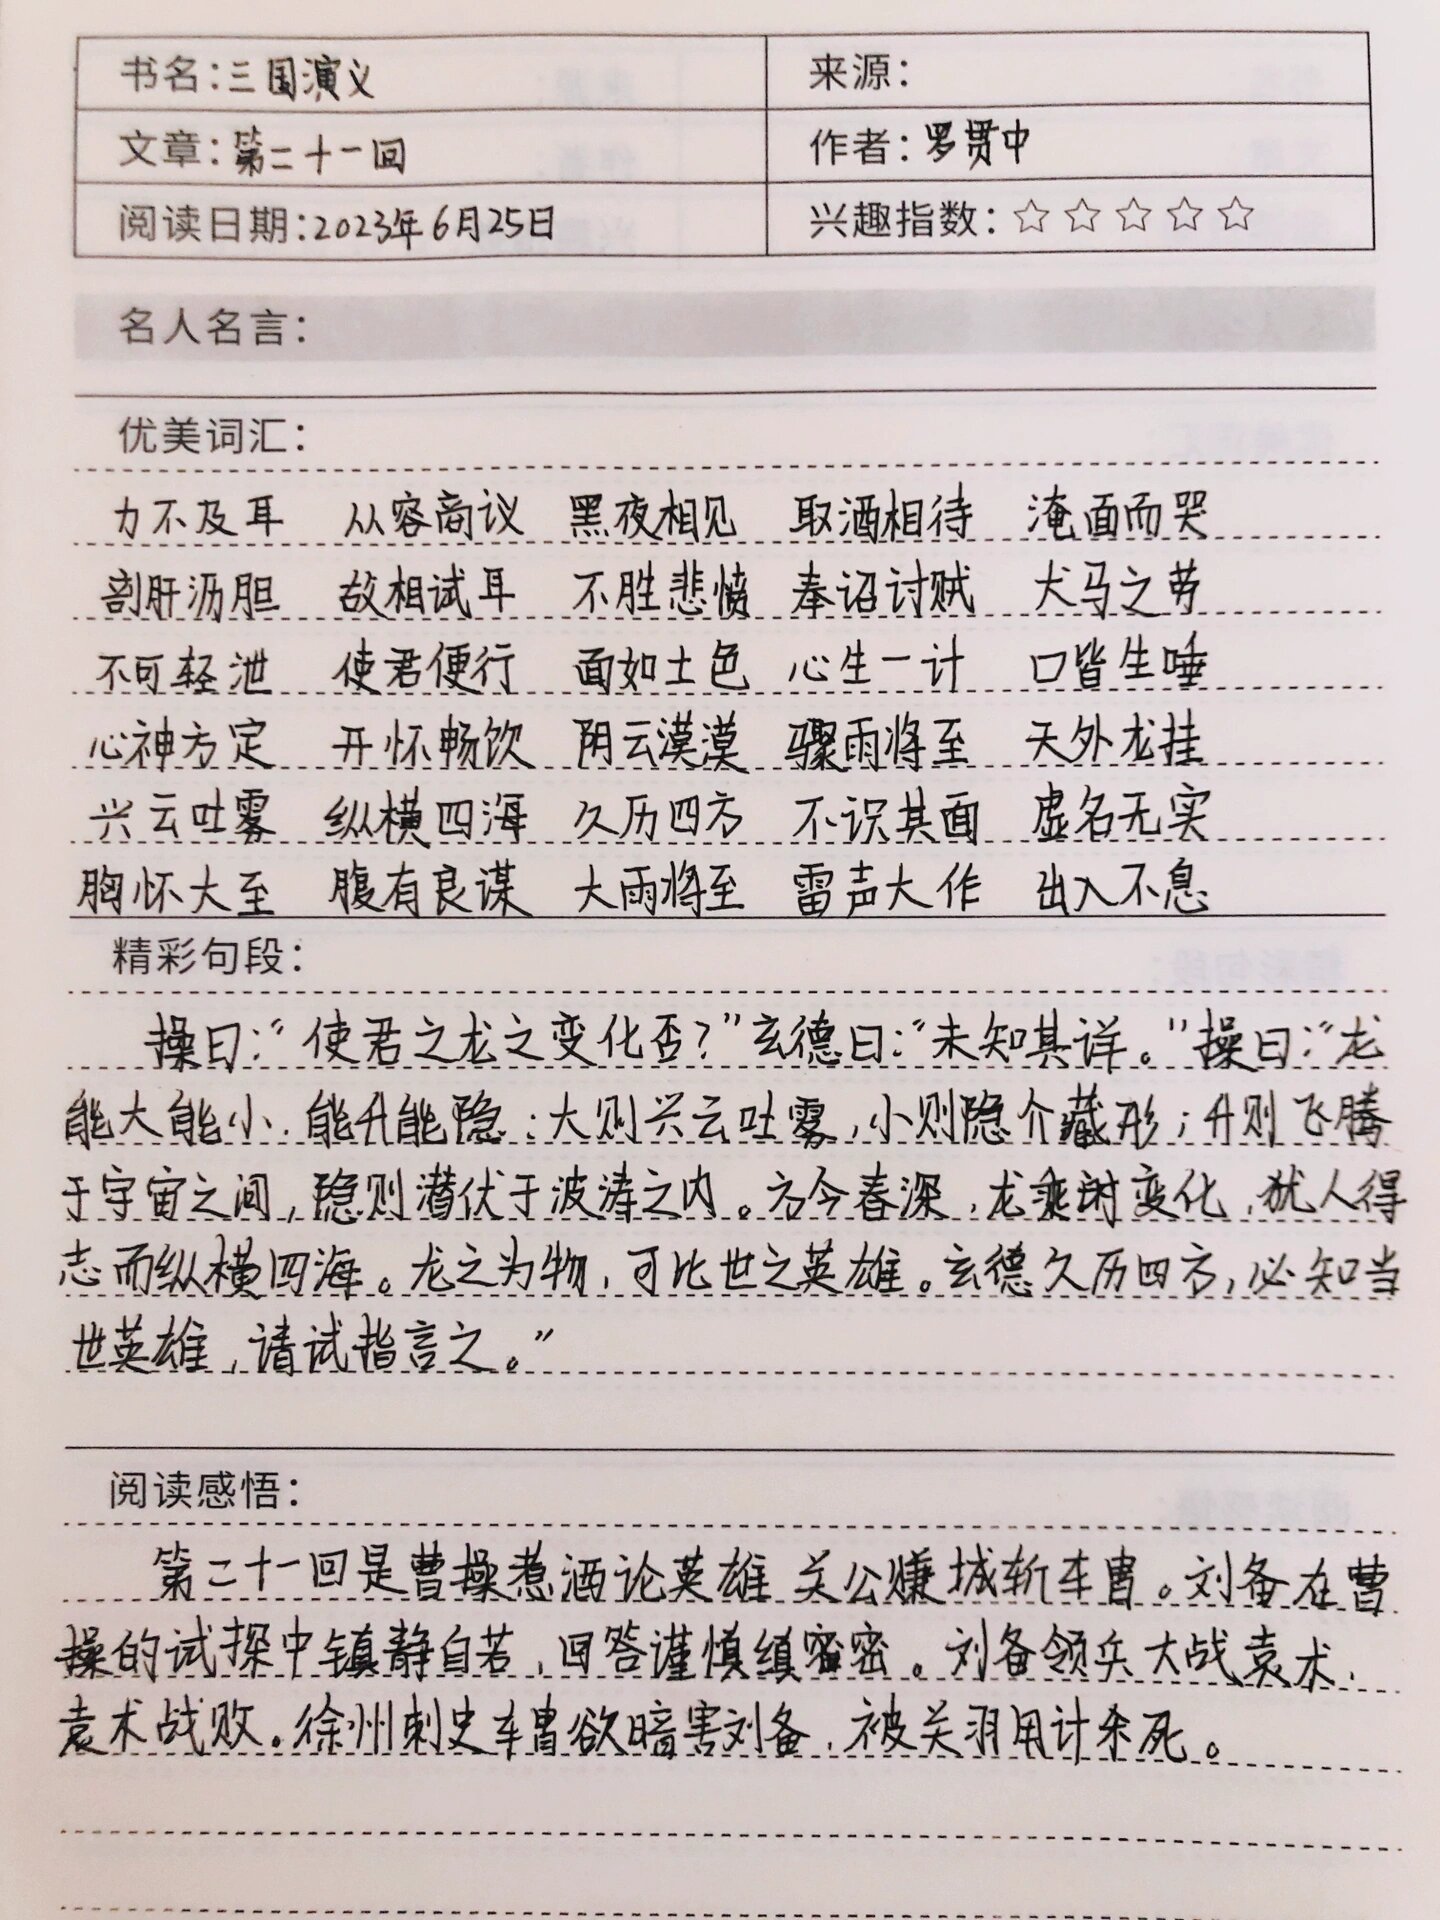 书名：三国演义 来源：
文章：第二十一回 作者：罗贯中
阅读日期：2023年6月25日 兴趣指数：☆☆☆☆☆
名人名言：
优美词汇：
力不及耳 从容商议 黑夜相见 取酒相待 淹面而哭
剖肝沥胆 故相试耳 不胜悲愤 奉诏讨贼 犬马之劳
不可轻泄 使君便行 面如土色 心生一计 口皆生唾
心神方定 开怀畅饮 阴云漠漠 骤雨将至 天外龙挂
兴云吐雾 纵横四海 久历四方 不识其面 虚名无实
胸怀大至 腹有良谋 大雨将至 雷声大作 出入不息
精彩句段：
操曰：“使君之龙之变化否？”玄德曰：“未知其详。”操曰：“龙
能大能小，能升能隐；大则兴云吐雾，小则隐介藏形；升则飞腾
于宇宙之间，隐则潜伏于波涛之内。方今春深，龙乘时变化，犹人得
志而纵横四海。龙之为物，可比世之英雄。玄德久历四方，必知当
世英雄，请试指言之。”
阅读感悟：
第二十一回是曹操惹酒论英雄 关公赚城斩车胄。刘备在曹
操的试探中镇静自若，回答谨慎缜密密。刘备领兵大战袁术，
袁术战败。徐州刺史车胄欲暗害刘备，被关羽用计杀死。